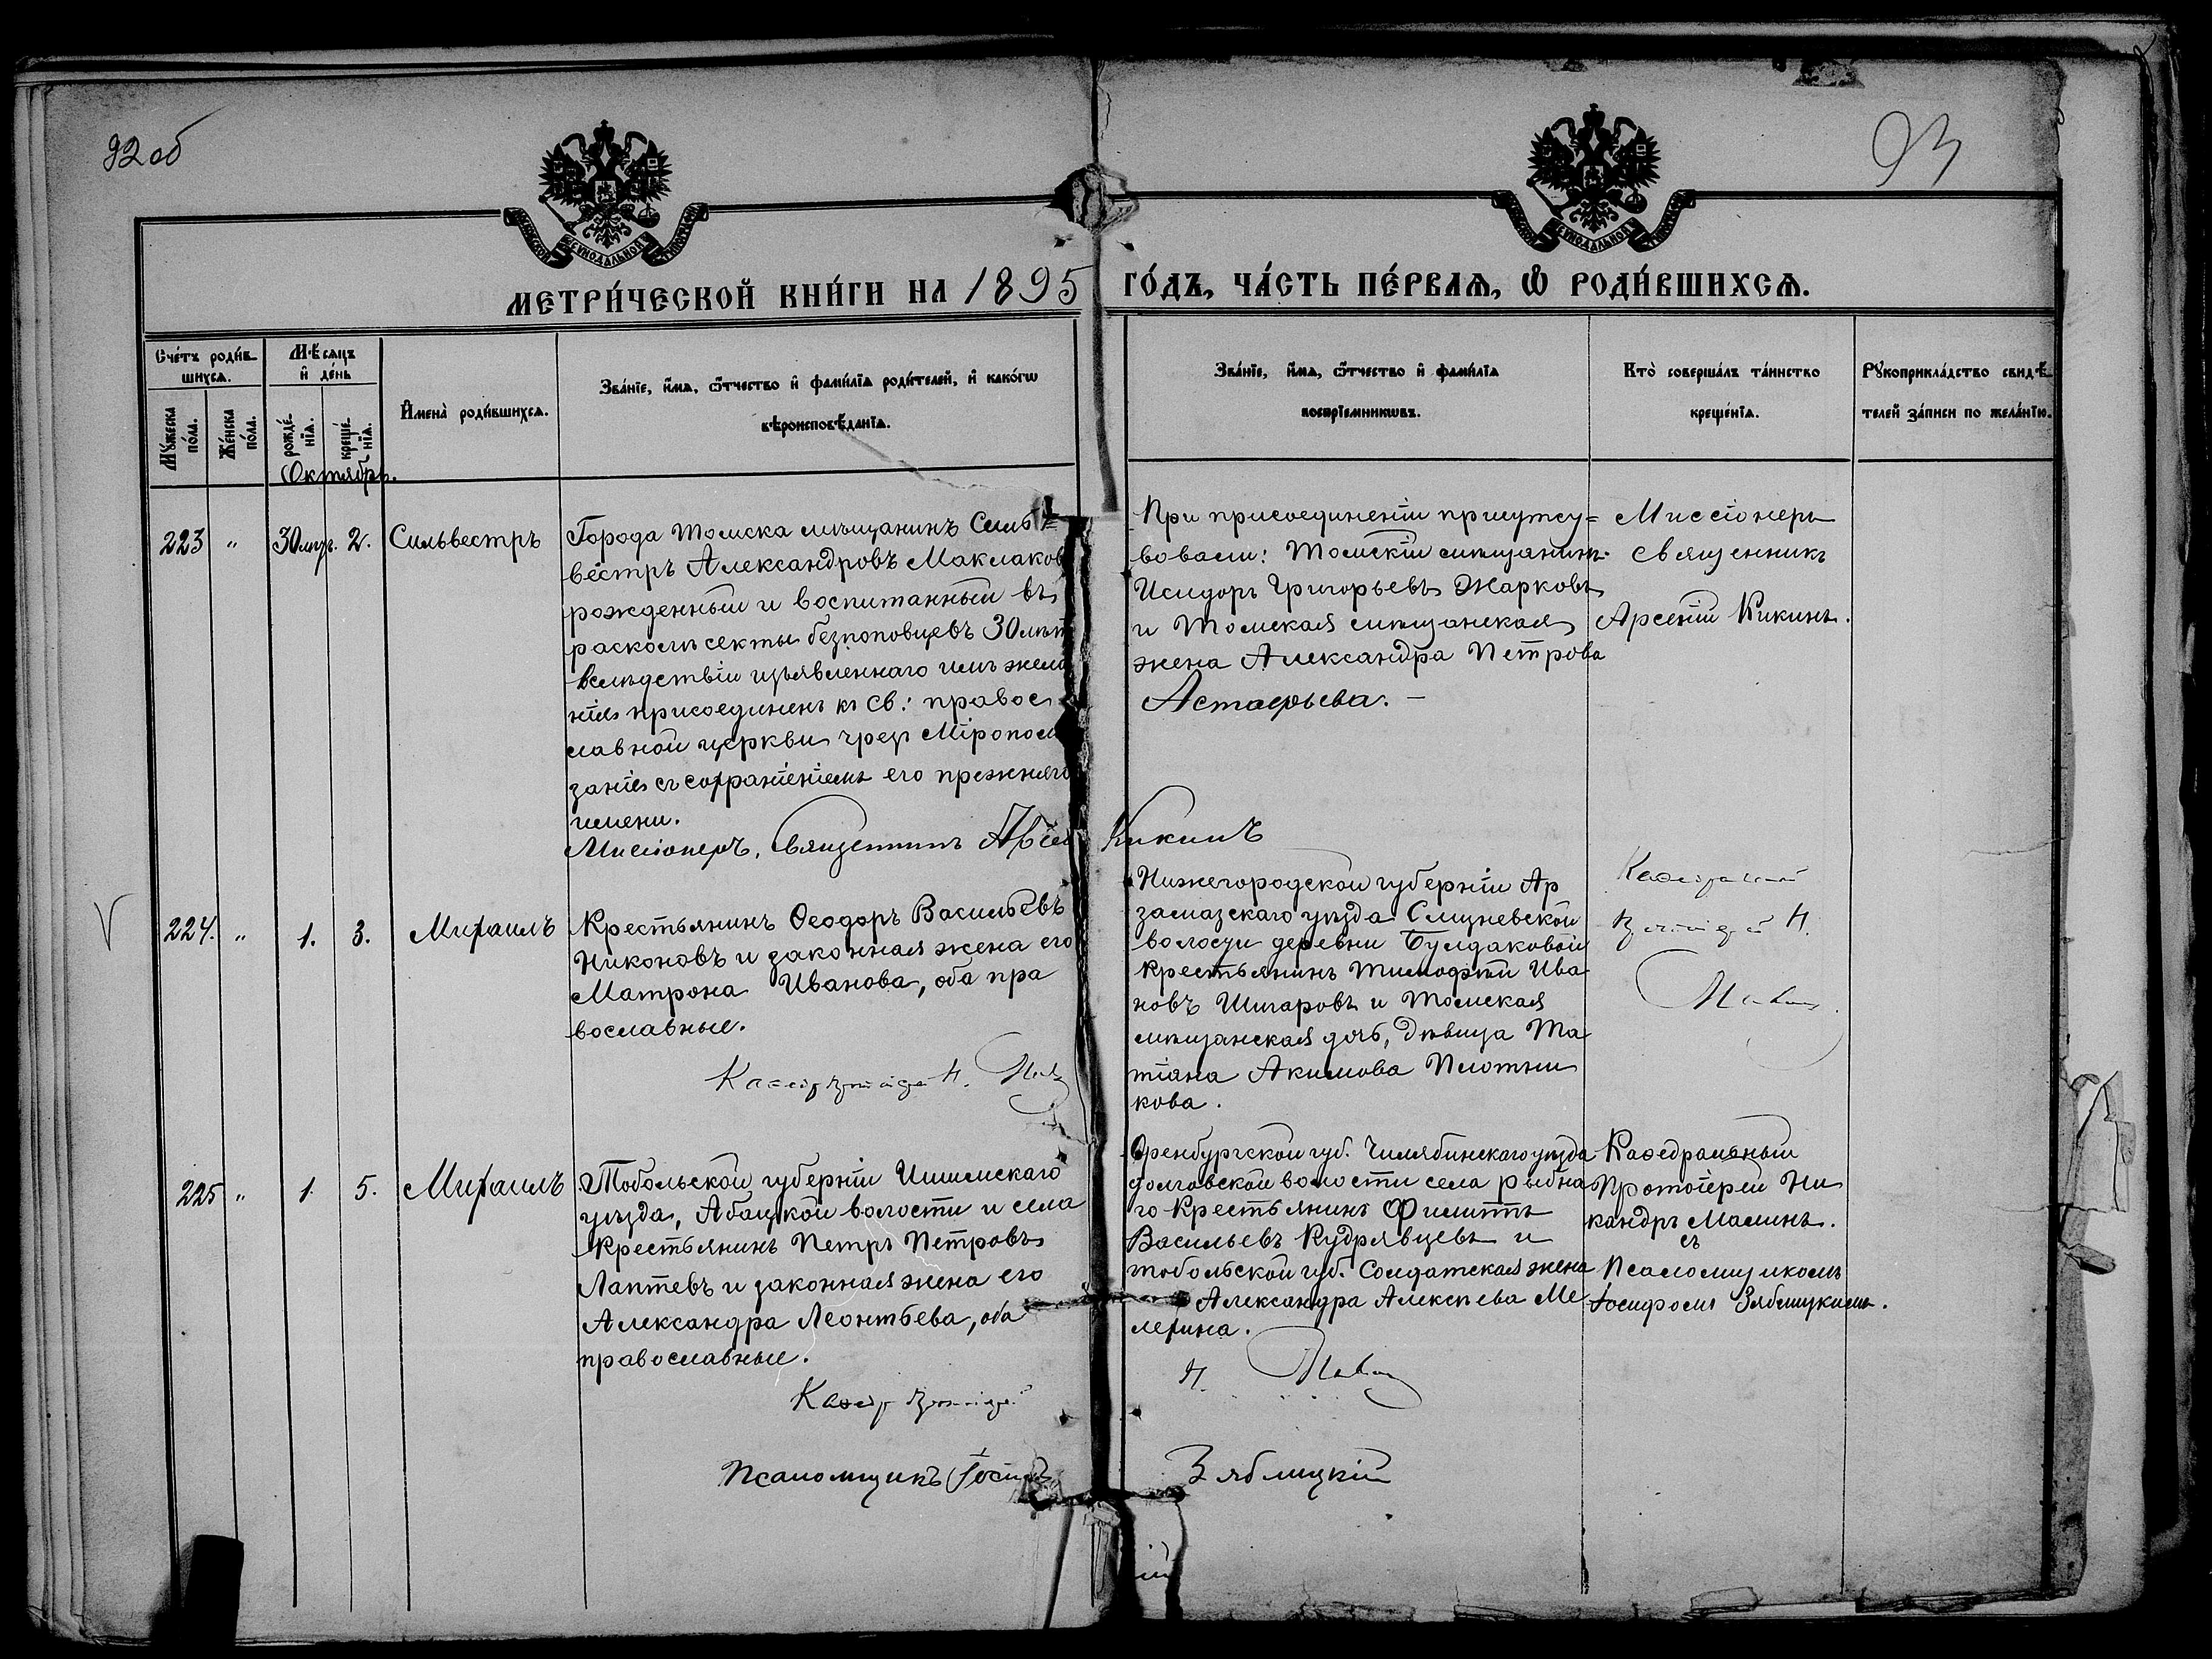 92 об
93
СѴНОДАЛЬНОЙ
СѴНОДАЛЬНОЙ
МЕТРИ́ЧЕСКОЙ КНИ́ГИ НА 1895 ГО́ДЪ, ЧА́СТЬ ПЕ́РВАѦ, Ѡ РОДИ́ВШИХСѦ.
Счétъ роди́в-
шихсѧ.
Мꙋ́жеска
по́ла.
Же́нска
по́ла.
Мѣ́сѧцъ
и҆ де́нь
рожде́-
нїѧ.
креще́-
нїѧ.
И҆мена̀ роди́вшихсѧ.
Зва́нїе, и҆́мѧ, ѻ҆́тчество и҆ фами́лїѧ роди́телей, и҆ како́гѡ
вѣроисповѣ́данїѧ.
Зва́нїе, и҆́мѧ, ѻ҆́тчество и҆ фами́лїѧ
воспрїе́мникѡвъ.
Кто̀ соверша́лъ та́инство
креще́нїѧ.
Рꙋкоприкла́дство свидѣ́-
телей за́писи по жела́нїю.
Октябрь.
223 " 30 2. Сильвестръ
Города Томска мѣщанинъ Силь=
вестръ Александровъ Маклаков
рожденный и воспитанный въ
расколѣ секты безпоповцевъ 30 лѣтъ
вслѣдствіи изъявленнаго имъ жела
нія присоединенъ къ св: правос
лавной церкви чрезъ Мѵропома
заніе съ сохраненіемъ его прежняго
имени.
Миссіонеръ, Священникъ Кикинъ
При присоединеніи присутсу=
вовали: Томскій мѣщанинъ
Исидоръ Григорьевъ Жарковъ
и Томская мѣщанская
жена Александра Петрова
Астафьева. –
Миссіонеръ
священникъ
Арсеній Кикинъ.
224. " 1. 3. Михаилъ
Крестьянинъ Ѳеодоръ Васильевъ
Никоновъ и законная жена его
Матрона Иванова, оба пра
вославные.
Нижегородской губерніи Ар
замазскаго уѣзда
волости деревни Булдаковой
крестьянинъ Тимофѣй Ива
новъ Шигаровъ и Томская
мѣщанская дочь, дѣвица Та
тіана Акимова Плотни
кова.
Каѳедральный
225 " 1. 5. Михаилъ
Тобольской губерніи Ишимскаго
уѣзда, Абацкой волости и села
крестьянинъ Петръ Петровъ
Лаптевъ и законная жена его
Александра Леонтьева, оба
православные.
Оренбургской губ. Челябинскаго уѣзда
долговской волости села рыбна
го Крестьянинъ Филиппъ
Васильевъ Кудрявцевъ и
тобольской губ. Солдатская жена
Александра Алексѣева Ме
лехина.
Каѳедральный
Протоіерей Ни
кандръ Малинъ.
съ
Псаломщикомъ
Іосифомъ Зяблицкимъ.
Псаломщикъ Іосифъ Зяблицкій